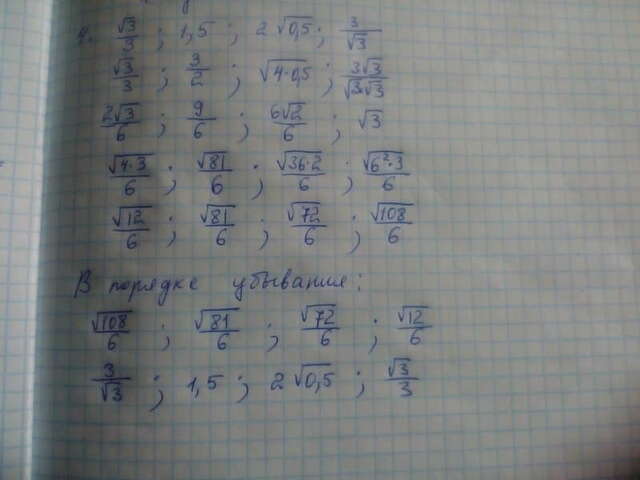 4. √3/3 ; 1,5 ; 2√0,5 ; 3/√3
√3/3 ; 3/2 ; √4·0,5 ; 3√3/√3·√3
2√3/6 ; 9/6 ; 6√2/6 ; √3
√4·3/6 ; √81/6 ; √36·2/6 ; √6²·3/6
√12/6 ; √81/6 ; √72/6 ; √108/6
В порядке убывания:
√108/6 ; √81/6 ; √72/6 ; √12/6
3/√3 ; 1,5 ; 2√0,5 ; √3/3